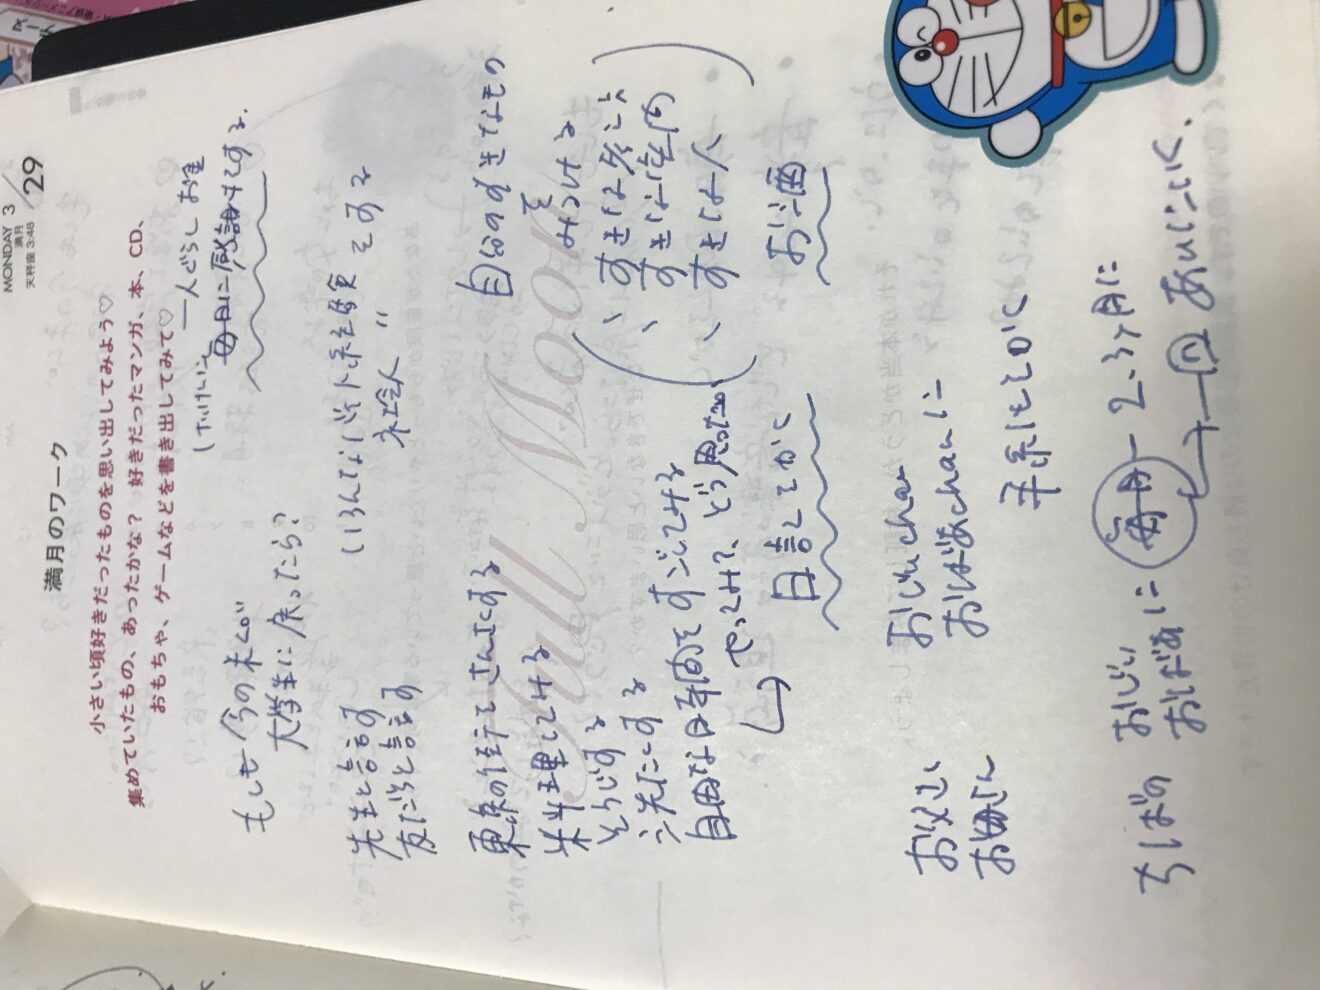 MONDAY 3/29
満月
天秤座 3:48
満月のワーク
小さい頃好きだったものを思い出してみよう♡
集めていたもの、あったかな？ 好きだったマンガ、本、CD、
おもちゃ、ゲームなどを書き出してみて♡
一人ぐらし お金
毎日に感謝する。
もしも 今の私が
大学生に戻ったら？
いろんなバイト 経験 をする
社会人 〃
先生と話す
友だちと話す
東京の街を さんさくする
料理してみる
そうじする
せんたくする
自由な時間を すごしてみる
→ やってみて、どう思ったか、
日記 とかく
自分のすきなもの
を
みつける
、すきな
、すきな
、すきな人
お酒
お父さん
お母さん
おじいchan
おばあchanに
手紙をとかく
ちばの おじい
おばあに 毎月 ー 2、3ヶ月に
一回 あいにいく、
Full Moon